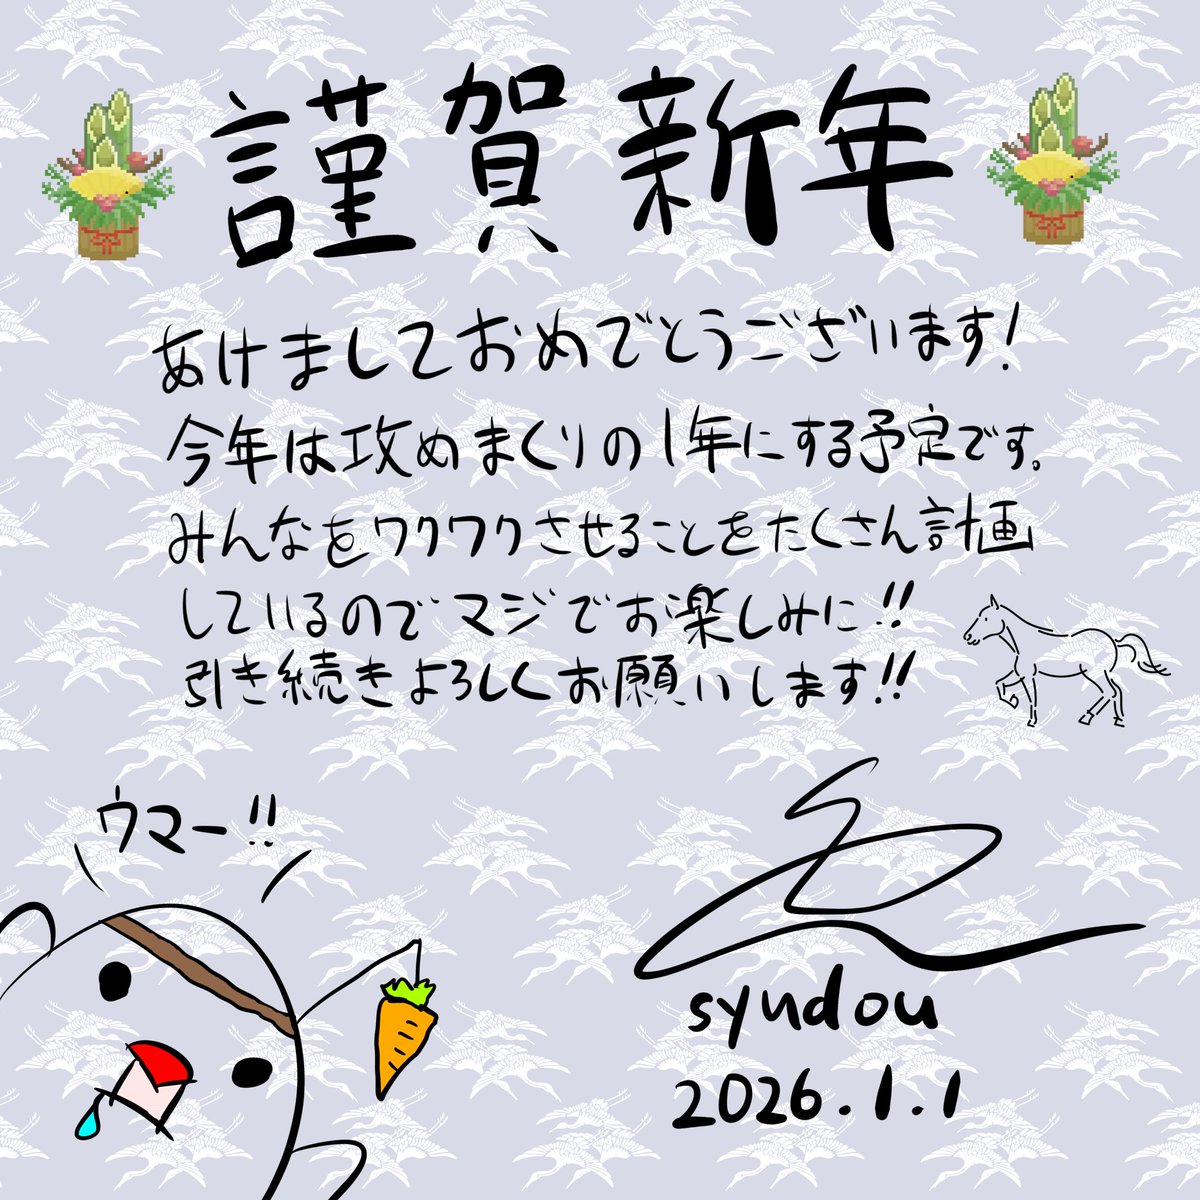 謹賀新年
あけましておめでとうございます!
今年は攻めまくりの1年にする予定です。
みんなをワクワクさせることをたくさん計画
しているのでマジでお楽しみに!!
引き続きよろしくお願いします!!
ウマー!!
syudou
2026.1.1